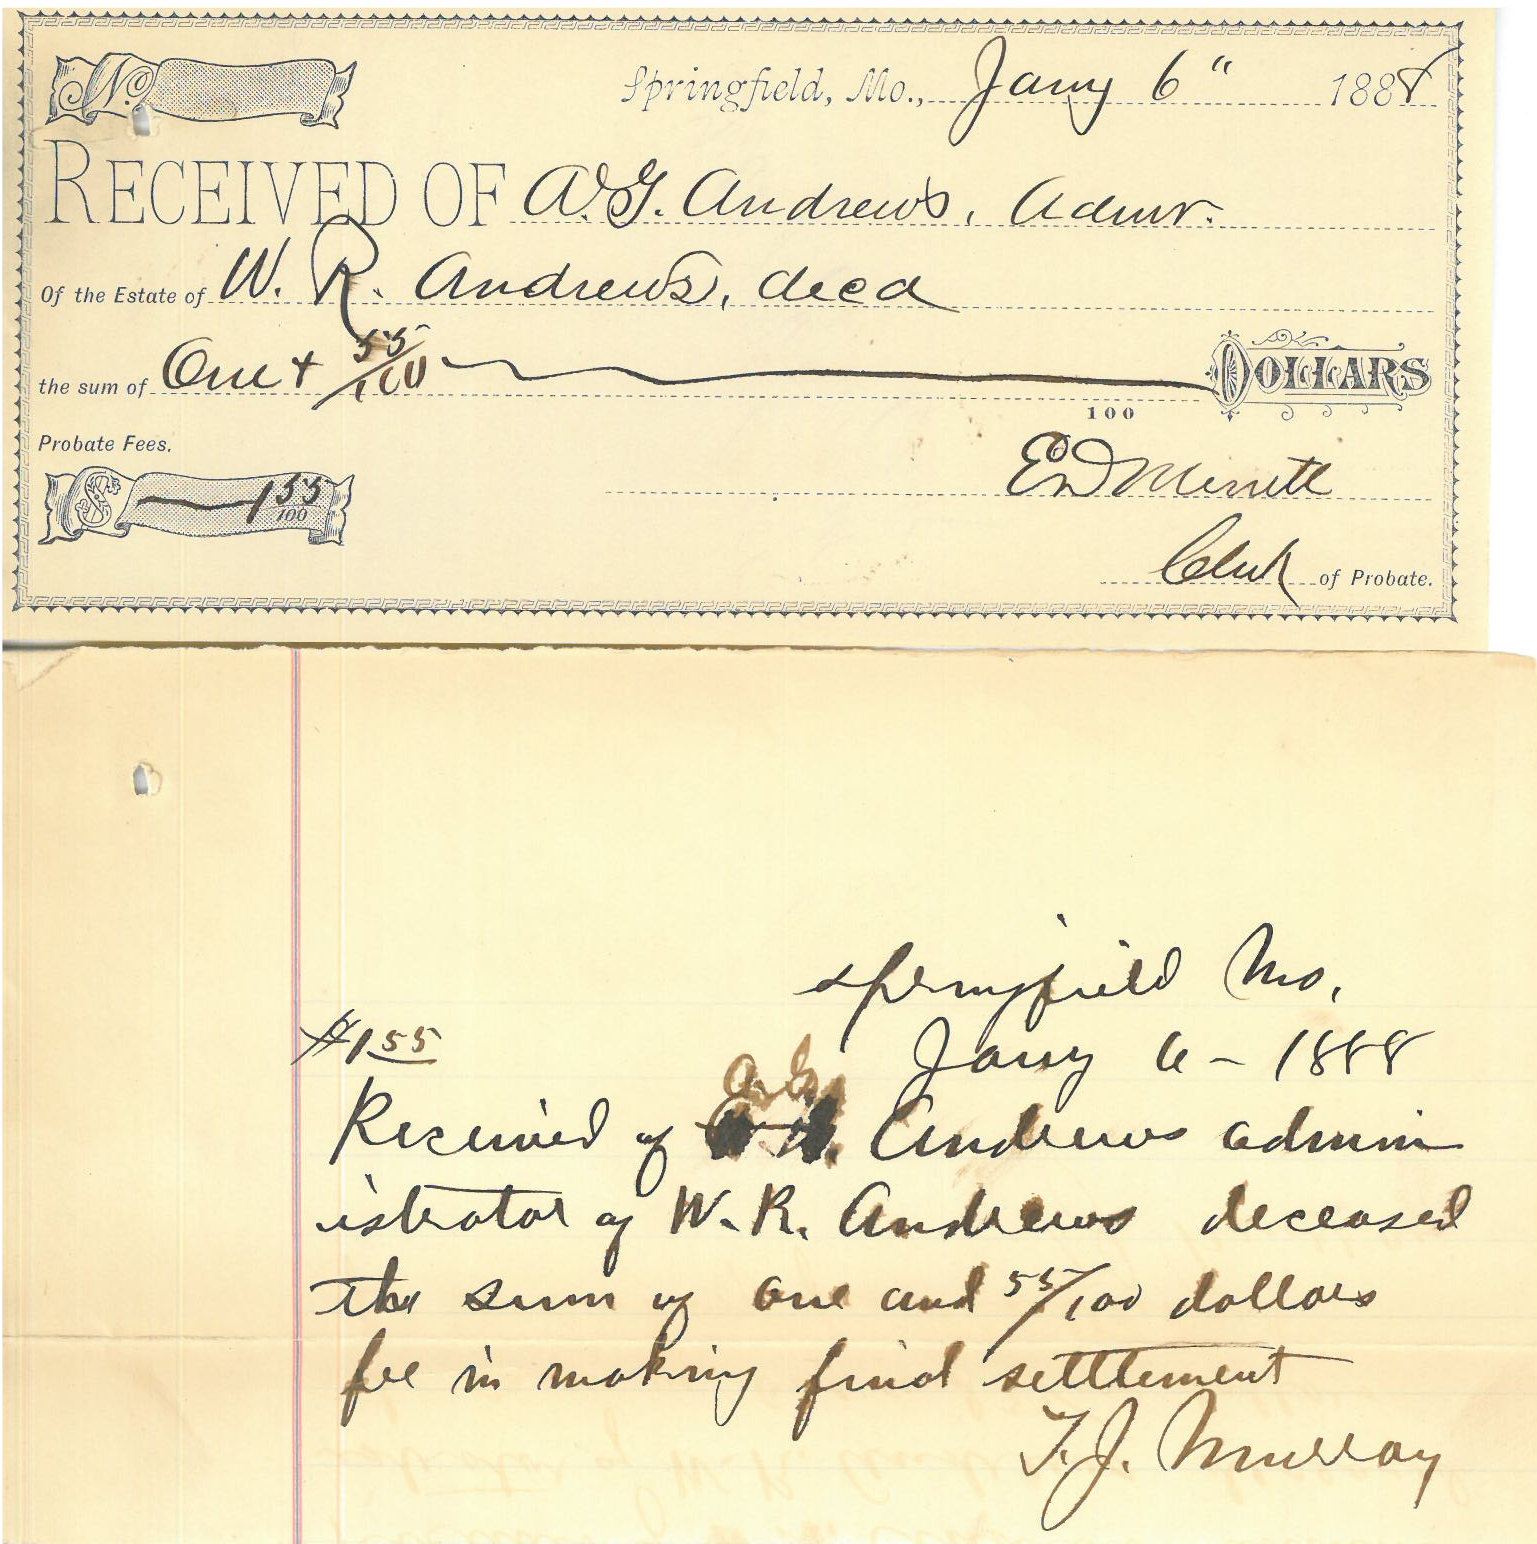 No.
Springfield, Mo., Jany 6" 1888
RECEIVED OF A. G. Andrews, Admr.
Of the Estate of W. R. Andrews, decd
the sum of One + 55/100 DOLLARS
100
Probate Fees.
$ 1 55/100
Ed Merritt
Clerk of Probate.
Springfield Mo,
$1 55
Jany 6 - 1888
A. G.
Received of Andrews admin
istrator of W. R. Andrews deceased
the sum of one and 55/100 dollars
fee in making final settlement
T. J. Murray